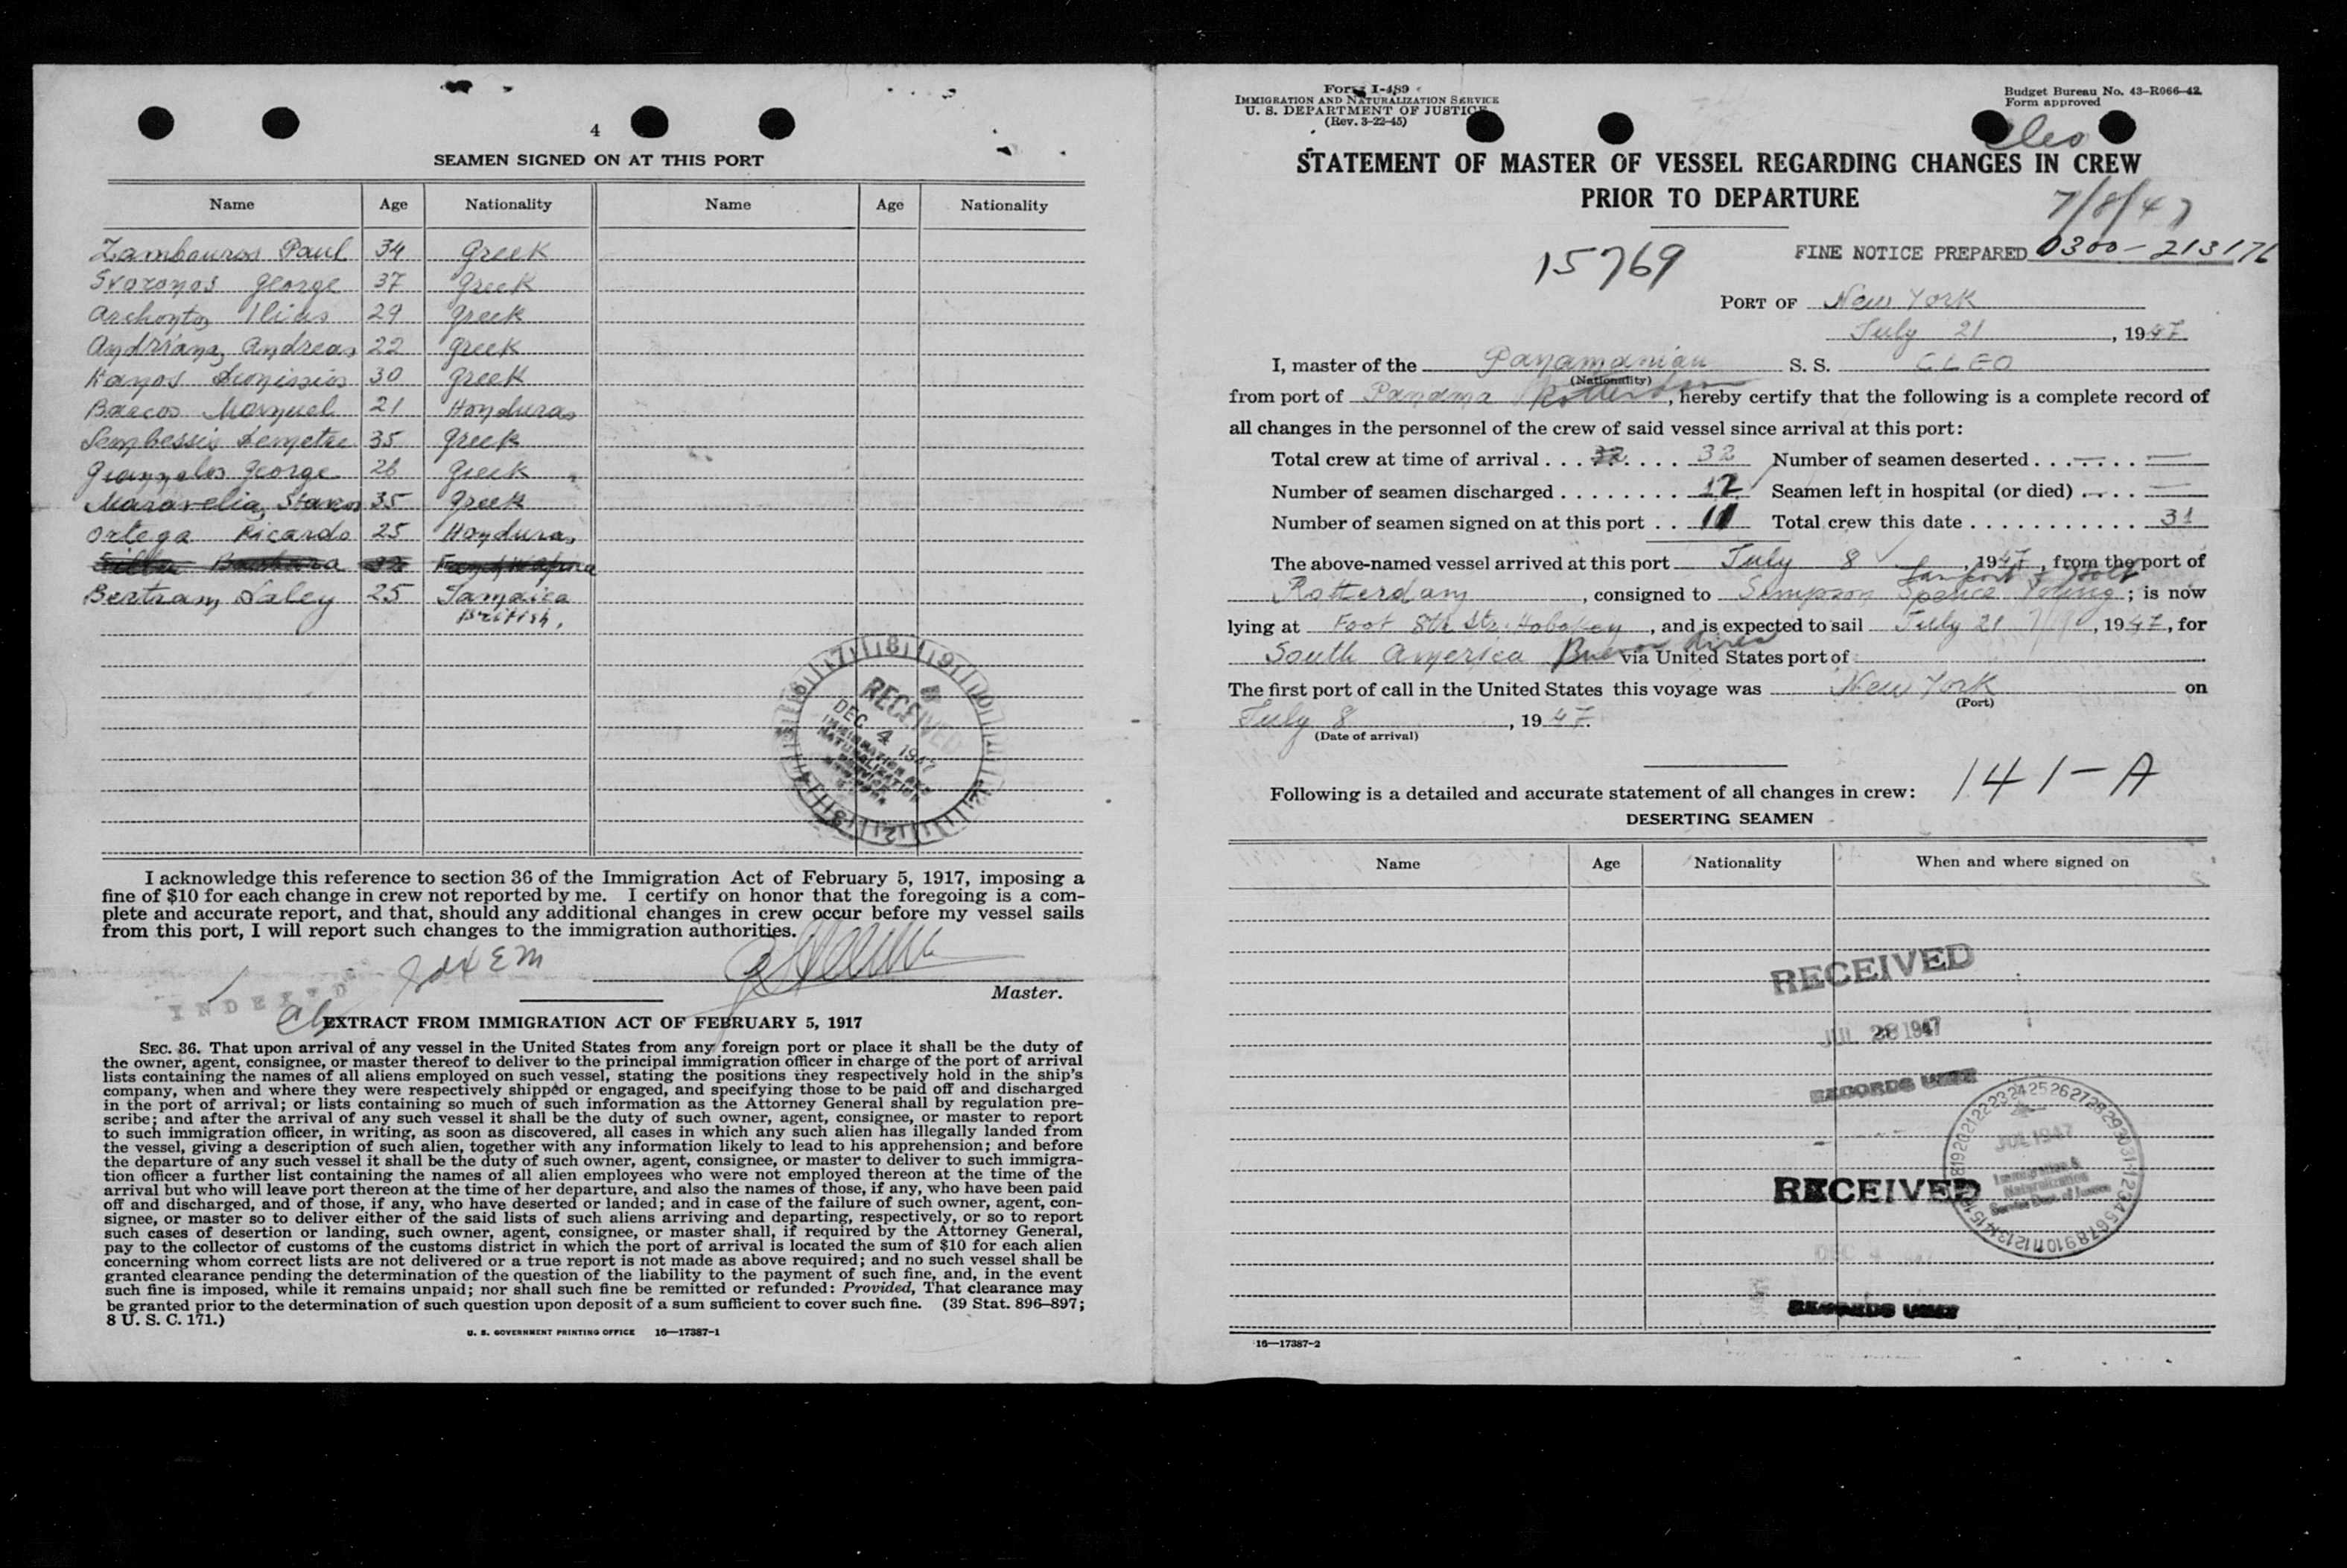 4
SEAMEN SIGNED ON AT THIS PORT
Name Age Nationality Name Age Nationality
Zambouros Paul 34 Greek
Svoronos George 37 Greek
Archontos Ilias 29 Greek
Andreas 22 Greek
30 Greek
Manuel 21 Honduras
Demetre 35 Greek
George 26 Greek
35 Greek
Ortega Ricardo 25 Honduras
Bertram Daley 25 Jamaica
British.
RECEIVED
DEC 4 1947
IMMIGRATION AND
NATURALIZATION
SERVICE
I acknowledge this reference to section 36 of the Immigration Act of February 5, 1917, imposing a
fine of $10 for each change in crew not reported by me. I certify on honor that the foregoing is a com-
plete and accurate report, and that, should any additional changes in crew occur before my vessel sails
from this port, I will report such changes to the immigration authorities.
Master.
INDEXED
EXTRACT FROM IMMIGRATION ACT OF FEBRUARY 5, 1917
SEC. 36. That upon arrival of any vessel in the United States from any foreign port or place it shall be the duty of
the owner, agent, consignee, or master thereof to deliver to the principal immigration officer in charge of the port of arrival
lists containing the names of all aliens employed on such vessel, stating the positions they respectively hold in the ship's
company, when and where they were respectively shipped or engaged, and specifying those to be paid off and discharged
in the port of arrival; or lists containing so much of such information as the Attorney General shall by regulation pre-
scribe; and after the arrival of any such vessel it shall be the duty of such owner, agent, consignee, or master to report
to such immigration officer, in writing, as soon as discovered, all cases in which any such alien has illegally landed from
the vessel, giving a description of such alien, together with any information likely to lead to his apprehension; and before
the departure of any such vessel it shall be the duty of such owner, agent, consignee, or master to deliver to such immigra-
tion officer a further list containing the names of all alien employees who were not employed thereon at the time of the
arrival but who will leave port thereon at the time of her departure, and also the names of those, if any, who have been paid
off and discharged, and of those, if any, who have deserted or landed; and in case of the failure of such owner, agent, con-
signee, or master so to deliver either of the said lists of such aliens arriving and departing, respectively, or so to report
such cases of desertion or landing, such owner, agent, consignee, or master shall, if required by the Attorney General,
pay to the collector of customs of the customs district in which the port of arrival is located the sum of $10 for each alien
concerning whom correct lists are not delivered or a true report is not made as above required; and no such vessel shall be
granted clearance pending the determination of the question of the liability to the payment of such fine, and, in the event
such fine is imposed, while it remains unpaid; nor shall such fine be remitted or refunded: Provided, That clearance may
be granted prior to the determination of such question upon deposit of a sum sufficient to cover such fine. (39 Stat. 896–897;
8 U. S. C. 171.)
U. S. GOVERNMENT PRINTING OFFICE 16—17387-1
Form I-489
IMMIGRATION AND NATURALIZATION SERVICE
U. S. DEPARTMENT OF JUSTICE
(Rev. 3-22-45)
Budget Bureau No. 43-R066-42.
Form approved
Cleo
STATEMENT OF MASTER OF VESSEL REGARDING CHANGES IN CREW
PRIOR TO DEPARTURE
7/8/47
15769
FINE NOTICE PREPARED 0300-213176
PORT OF New York
July 21, 1947
I, master of the Panamanian S. S. CLEO
(Nationality)
from port of Panama Rotterdam, hereby certify that the following is a complete record of
all changes in the personnel of the crew of said vessel since arrival at this port:
Total crew at time of arrival . . . 32 . . . . 32 Number of seamen deserted . . . — . . . —
Number of seamen discharged . . . . . . . . 12 Seamen left in hospital (or died) . . . . —
Number of seamen signed on at this port . . 11 Total crew this date . . . . . . . . . . . . 31
The above-named vessel arrived at this port July 8, 1947, from the port of
Rotterdam, consigned to Simpson Spence Young; is now
lying at Foot 8th Str. Hoboken, and is expected to sail July 21, 1947, for
South America Buenos Aires via United States port of
The first port of call in the United States this voyage was New York on
(Port)
July 8, 1947.
(Date of arrival)
141-A
Following is a detailed and accurate statement of all changes in crew:
DESERTING SEAMEN
Name Age Nationality When and where signed on
RECEIVED
JUL 28 1947
RECORDS UNIT
JUL 1947
Immigration &
Naturalization
Service Dept. of Justice
RECEIVED
DEC 4 1947
RECORDS UNIT
16—17387-2